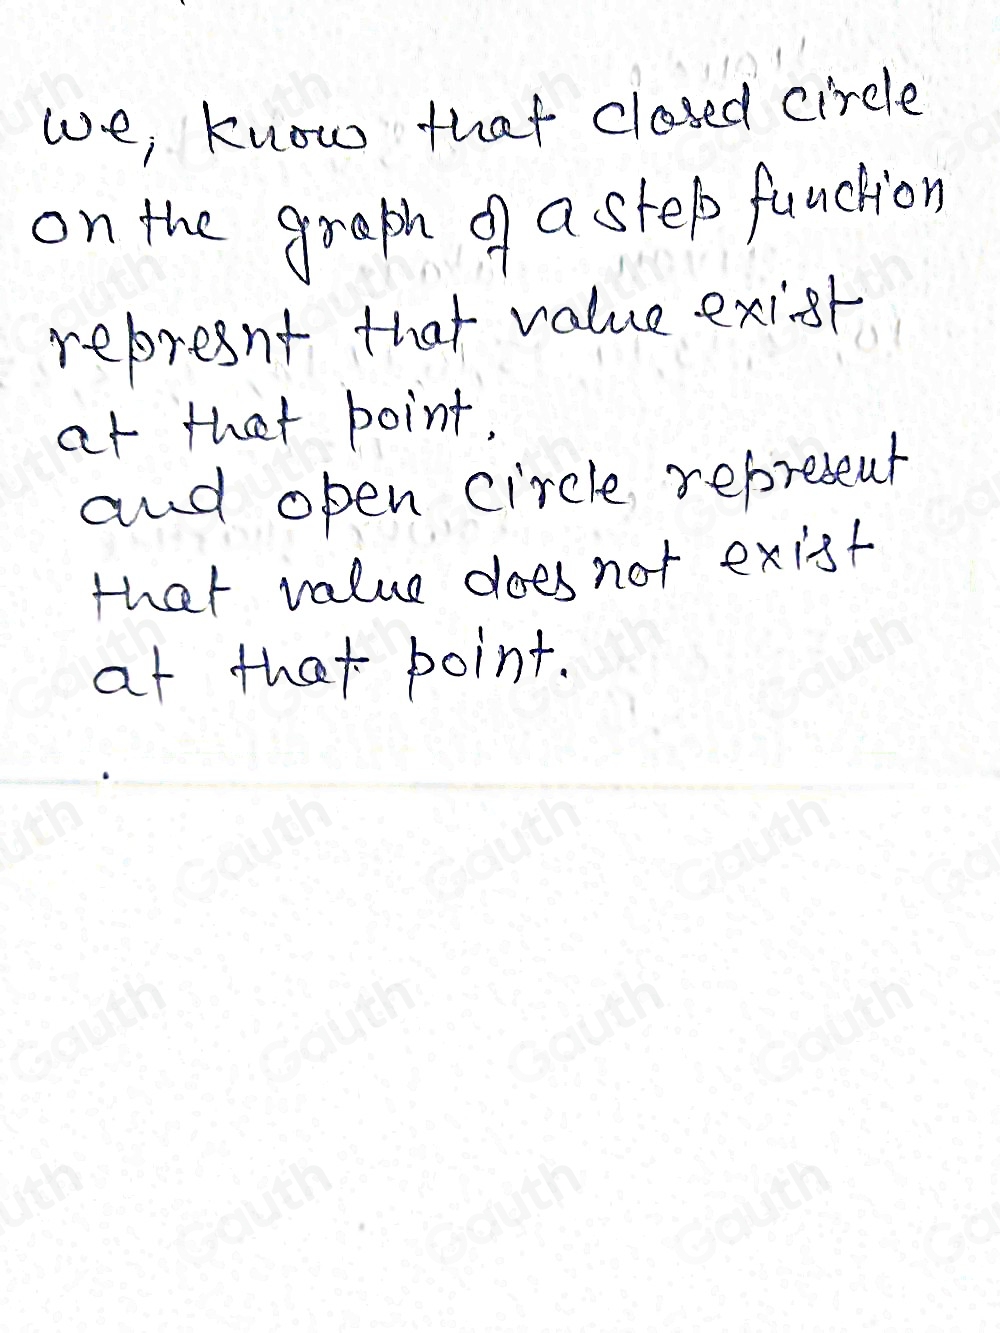 we, know that closed circle
on the graph of a step function
represnt that value exist
at that point.
and open circle represent
that value does not exist
at that point.